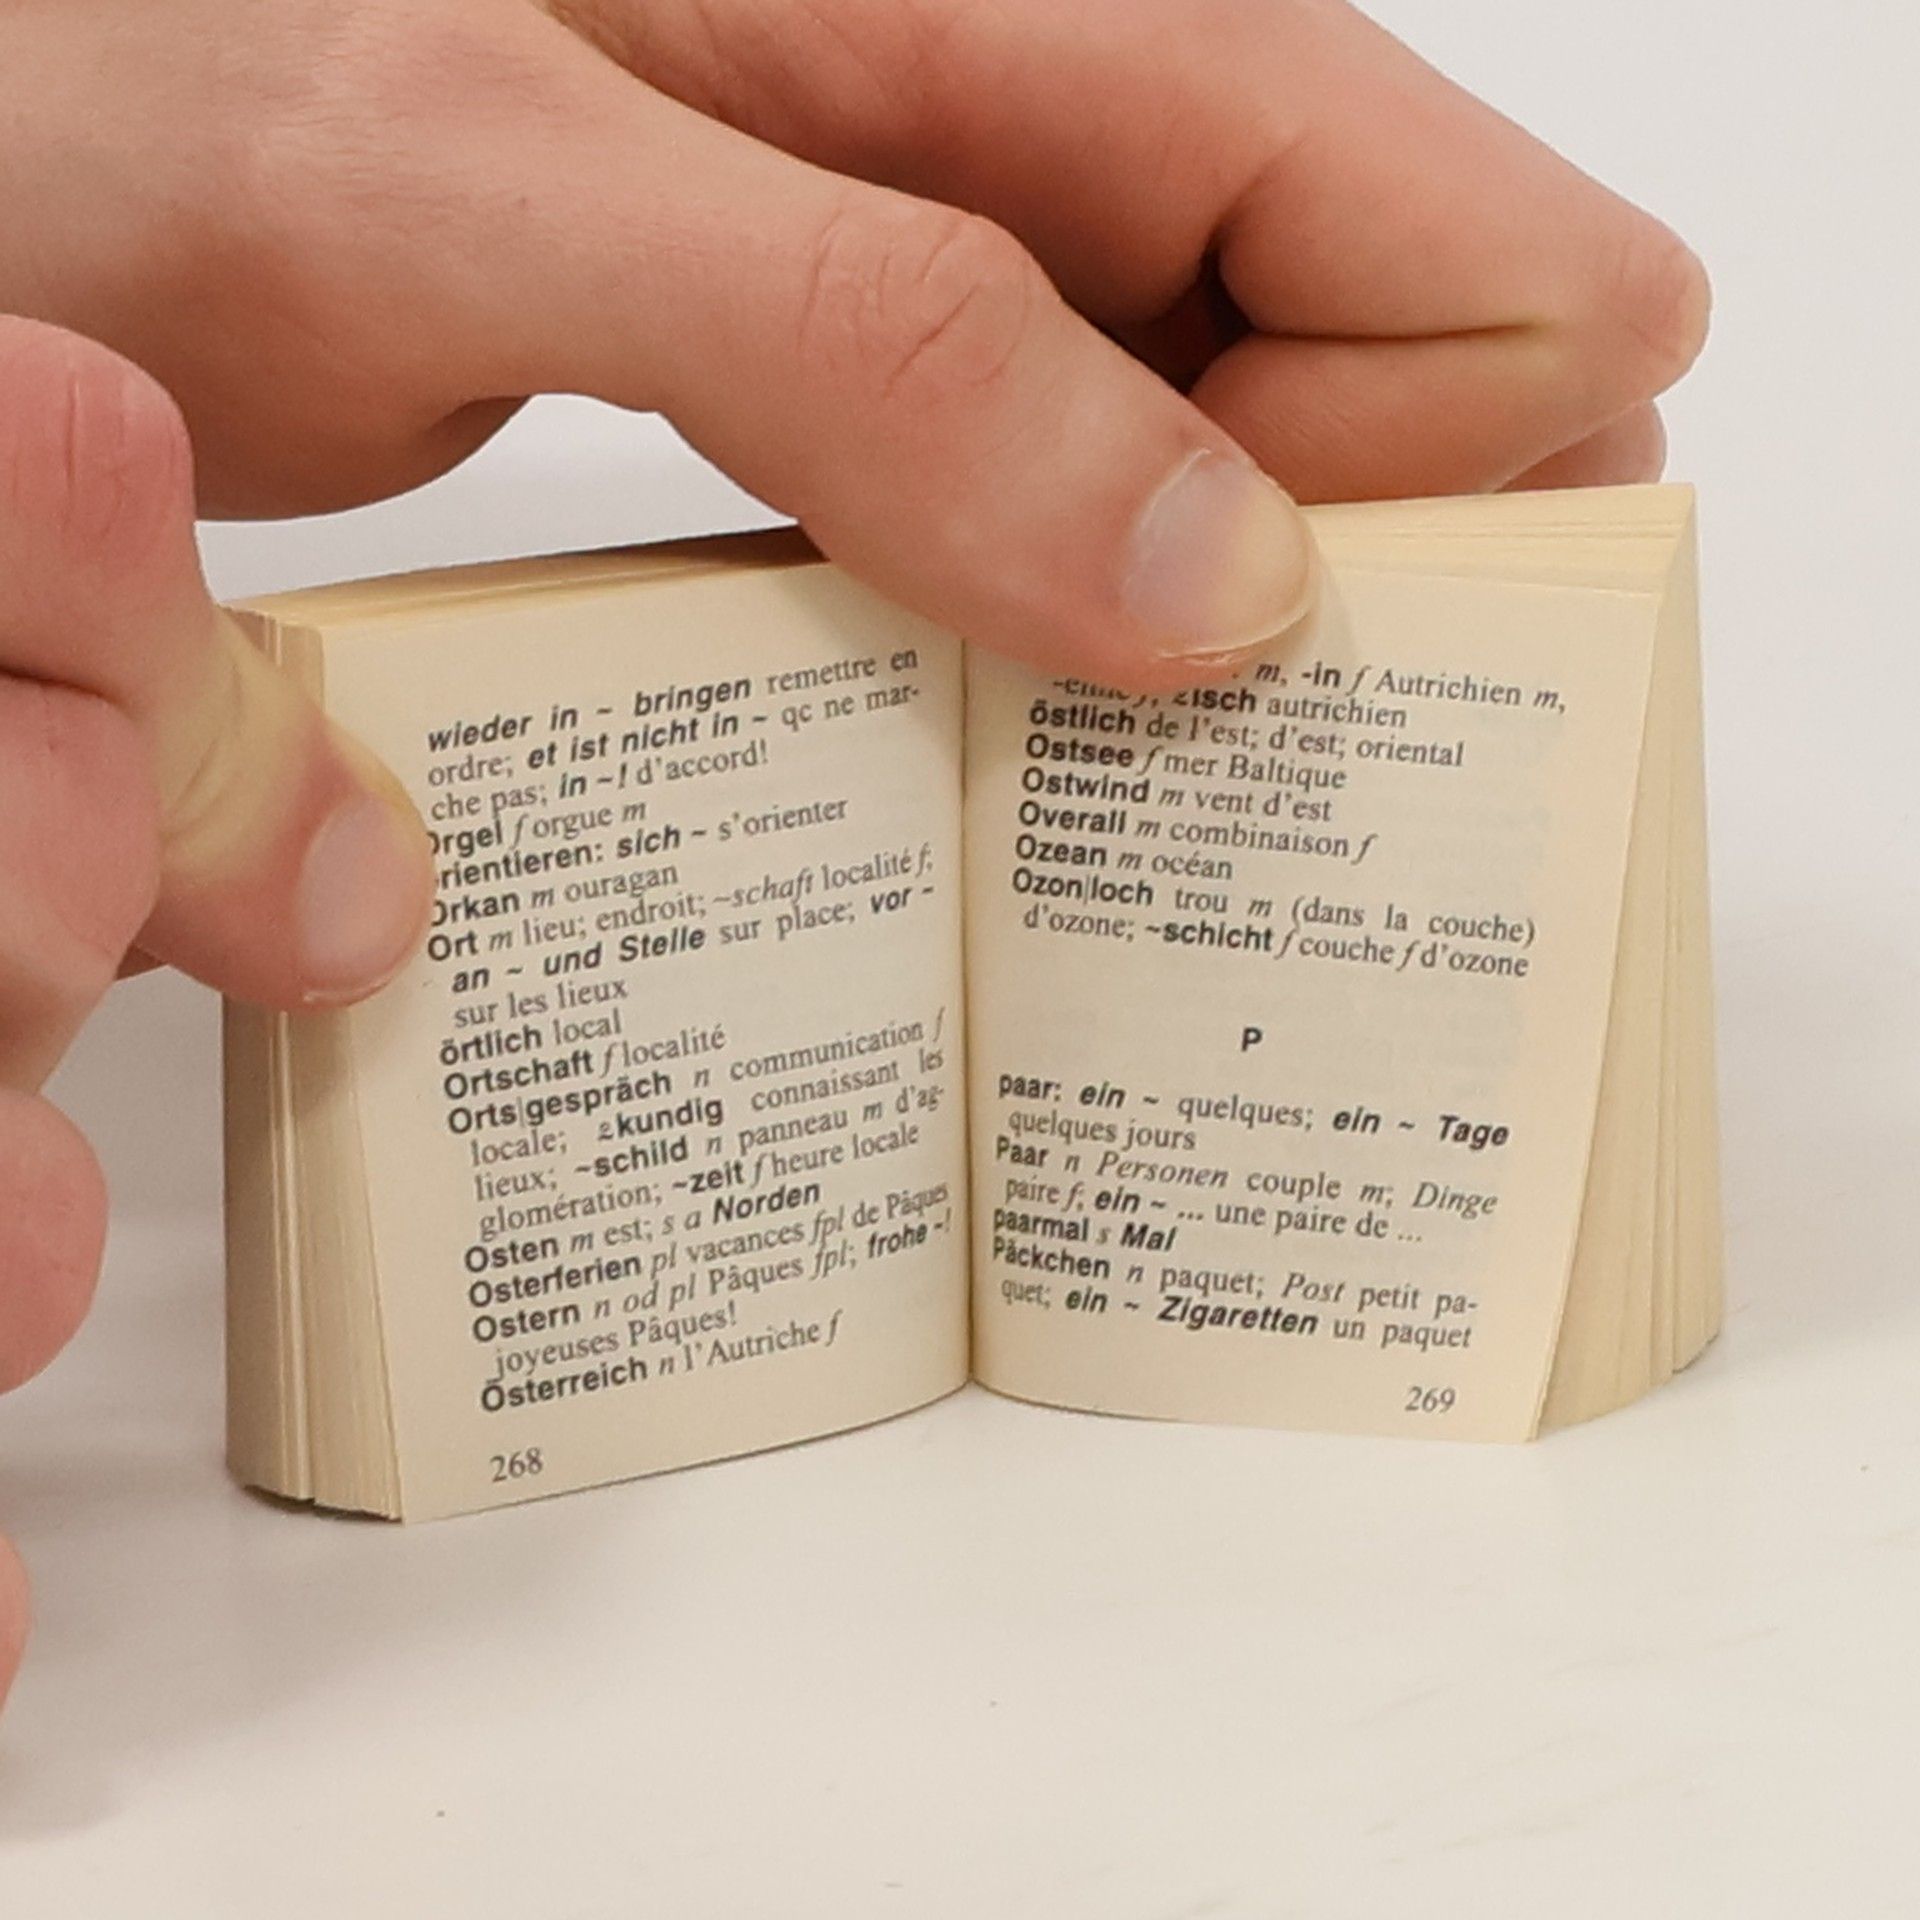 wieder in ~ bringen remettre en
ordre; et ist nicht in ~ qc ne mar-
che pas; in ~! d'accord!
Orgel f orgue m
orientieren: sich ~ s'orienter
Orkan m ouragan
Ort m lieu; endroit; ~schaft localité f;
an ~ und Stelle sur place; vor ~
sur les lieux
örtlich local
Ortschaft f localité
Orts|gespräch n communication f
locale; ≈kundig connaissant les
lieux; ~schild n panneau m d'ag-
glomération; ~zeit f heure locale
Osten m est; s a Norden
Osterferien pl vacances fpl de Pâques
Ostern n od pl Pâques fpl; frohe ~!
joyeuses Pâques!
Österreich n l'Autriche f
268
m, -in f Autrichien m,
-enne f; ≈isch autrichien
östlich de l'est; d'est; oriental
Ostsee f mer Baltique
Ostwind m vent d'est
Overall m combinaison f
Ozean m océan
Ozon|loch trou m (dans la couche)
d'ozone; ~schicht f couche f d'ozone
P
paar: ein ~ quelques; ein ~ Tage
quelques jours
Paar n Personen couple m; Dinge
paire f; ein ~ ... une paire de ...
paarmal s Mal
Päckchen n paquet; Post petit pa-
quet; ein ~ Zigaretten un paquet
269